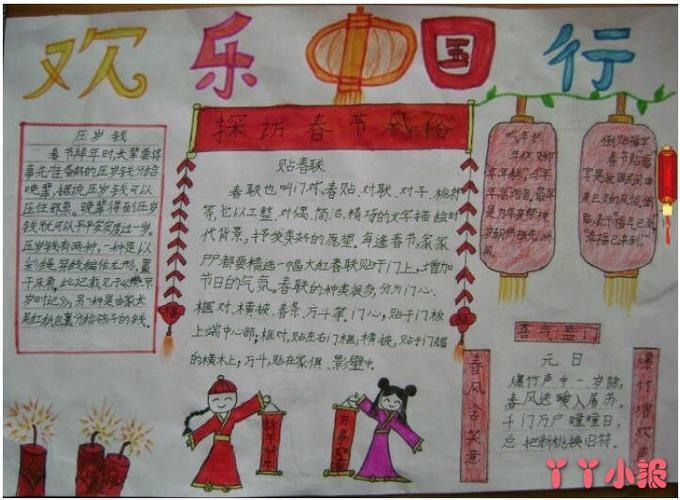 欢乐中国行
探访春节风俗
压岁钱
春节拜年时,长辈要将
事先准备好的压岁钱分给
晚辈,据说压岁钱可以
压住邪祟,晚辈得到压岁
钱就可以平平安安度过一岁。
压岁钱有两种,一种是以
彩绳穿线编作龙形,置
于床角,此记载见于《燕京
岁时记》,另一种是由家长
用红纸包裹分给孩子的钱。
贴春联
春联也叫门对、春贴、对联、对子、桃符
等,它以工整、对偶、简洁、精巧的文字描绘时
代背景,抒发美好的愿望。每逢春节,家家
户户都要精选一幅大红春联贴于门上,增加
节日的气氛。春联的种类很多,分为门心、
框对、横披、春条、万斗等。门心,贴于门板
上端中心部。框对,贴左右门框;横披,贴于门楣
的横木上;万斗,贴在家俱、影壁中。
吃年糕
倒贴福字
春节贴福
喜气盈门
春风含笑意
元日
爆竹声中一岁除,
春风送暖入屠苏。
千门万户瞳瞳日,
总把新桃换旧符。
爆竹增欢
丫丫小报